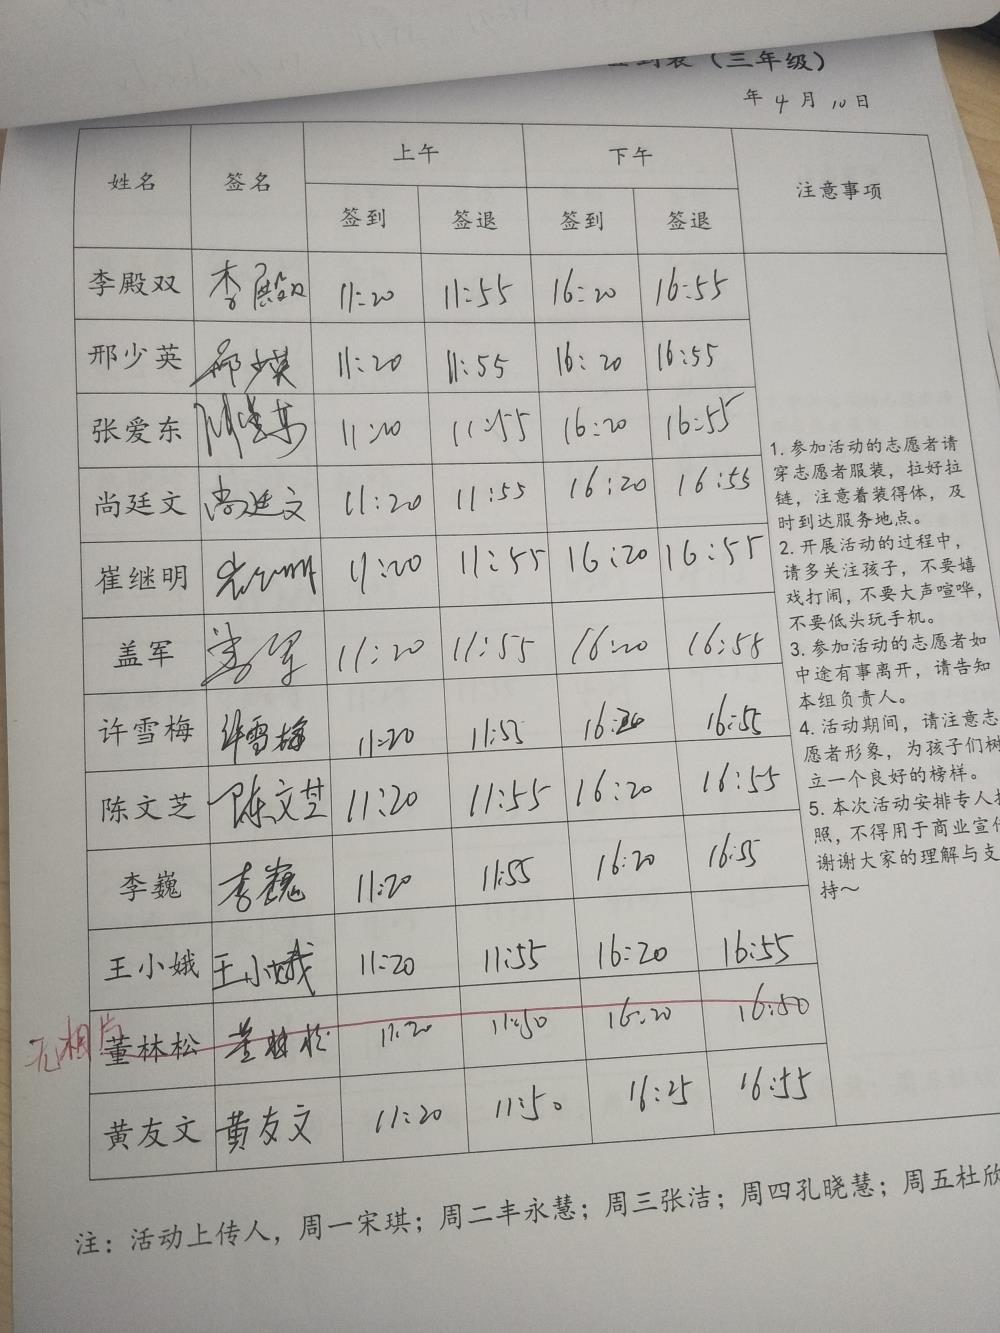 到表（三年级）
年 4 月 10 日
姓名 签名 上午 下午 注意事项
签到 签退 签到 签退
李殿双 李殿双 11:20 11:55 16:20 16:55
邢少英 邢少英 11:20 11:55 16:20 16:55
张爱东 11:20 11:55 16:20 16:55
尚廷文 尚廷文 11:20 11:55 16:20 16:55
崔继明 11:20 11:55 16:20 16:55
盖军 盖军 11:20 11:55 16:20 16:55
许雪梅 许雪梅 11:20 11:55 16:20 16:55
陈文芝 陈文芝 11:20 11:55 16:20 16:55
李巍 李巍 11:20 11:55 16:20 16:55
王小娥 王小娥 11:20 11:55 16:20 16:55
无相片 董林松 董林松 11:20 11:50 16:20 16:50
黄友文 黄友文 11:20 11:50 16:25 16:55
1. 参加活动的志愿者请
穿志愿者服装，拉好拉
链，注意着装得体，及
时到达服务地点。
2. 开展活动的过程中，
请多关注孩子，不要嬉
戏打闹，不要大声喧哗，
不要低头玩手机。
3. 参加活动的志愿者如
中途有事离开，请告知
本组负责人。
4. 活动期间，请注意志
愿者形象，为孩子们树
立一个良好的榜样。
5. 本次活动安排专人
照，不得用于商业宣
谢谢大家的理解与支
持～
注：活动上传人，周一宋琪；周二丰永慧；周三张洁；周四孔晓慧；周五杜欣